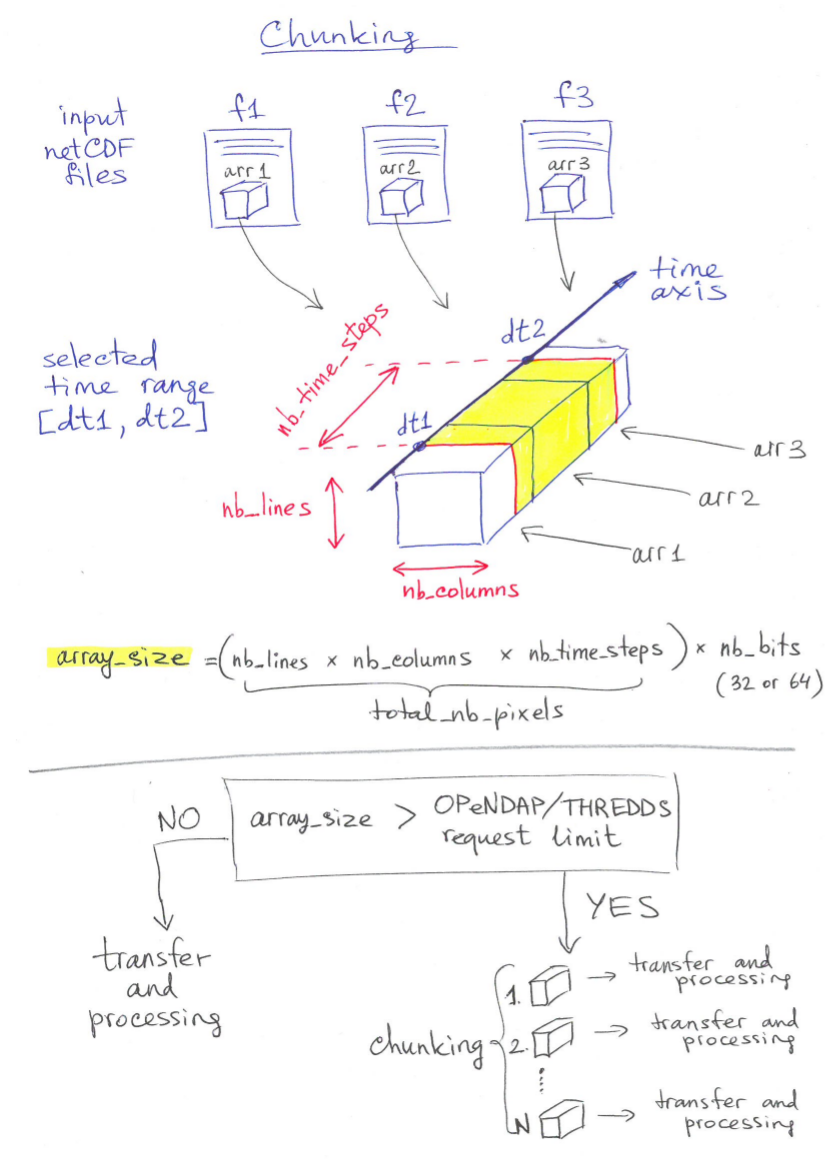 Chunking
input
netCDF
files
f1
f2
f3
arr1
arr2
arr3
time
axis
selected
time range
[dt1, dt2]
nb_time_steps
dt2
dt1
nb_lines
nb_columns
arr3
arr2
arr1
array_size = (nb_lines × nb_columns × nb_time_steps) × nb_bits
(32 or 64)
total_nb_pixels
array_size > OPeNDAP/THREDDS
request limit
NO
YES
transfer
and
processing
chunking
1. → transfer and
processing
2. → transfer and
processing
N → transfer and
processing